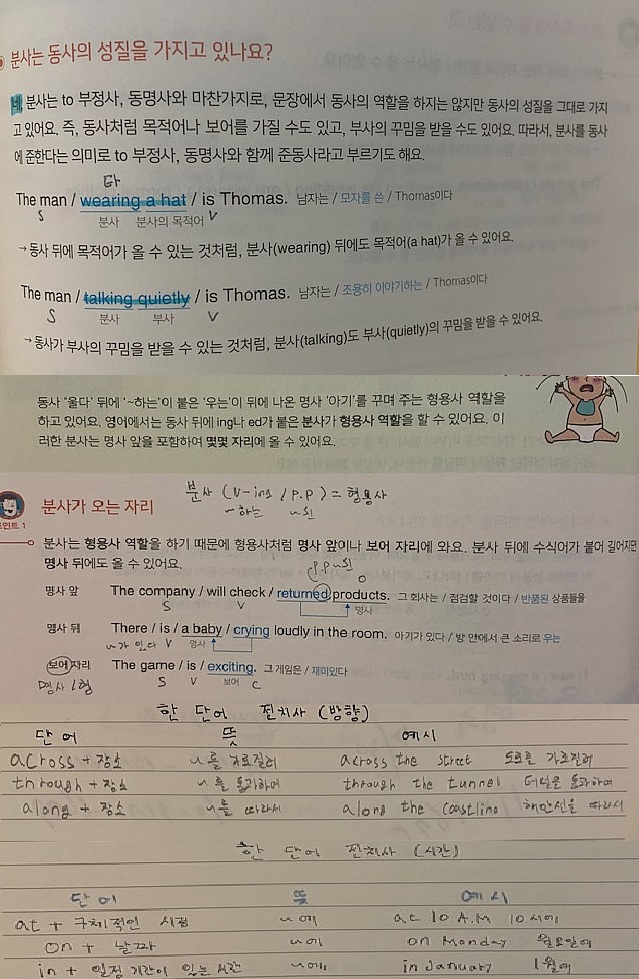 분사는 동사의 성질을 가지고 있나요?
네, 분사는 to 부정사, 동명사와 마찬가지로, 문장에서 동사의 역할을 하지는 않지만 동사의 성질을 그대로 가지
고 있어요. 즉, 동사처럼 목적어나 보어를 가질 수도 있고, 부사의 꾸밈을 받을 수도 있어요. 따라서, 분사를 동사
에 준한다는 의미로 to 부정사, 동명사와 함께 준동사라고 부르기도 해요.
타
The man / wearing a hat / is Thomas. 남자는 / 모자를 쓴 / Thomas이다
S 분사 분사의 목적어 V
→ 동사 뒤에 목적어가 올 수 있는 것처럼, 분사(wearing) 뒤에도 목적어(a hat)가 올 수 있어요.
The man / talking quietly / is Thomas. 남자는 / 조용히 이야기하는 / Thomas이다
S 분사 부사 V
→ 동사가 부사의 꾸밈을 받을 수 있는 것처럼, 분사(talking)도 부사(quietly)의 꾸밈을 받을 수 있어요.
동사 '울다' 뒤에 '~하는'이 붙은 '우는'이 뒤에 나온 명사 '아기'를 꾸며 주는 형용사 역할을
하고 있어요. 영어에서는 동사 뒤에 ing나 ed가 붙은 분사가 형용사 역할을 할 수 있어요. 이
러한 분사는 명사 앞을 포함하여 몇몇 자리에 올 수 있어요.
분사 (V-ing / P.P) = 형용사
~하는 ~된
포인트 1 분사가 오는 자리
분사는 형용사 역할을 하기 때문에 형용사처럼 명사 앞이나 보어 자리에 와요. 분사 뒤에 수식어가 붙어 길어지면
명사 뒤에도 올 수 있어요.
P.P ~된
명사 앞 The company / will check / returned products. 그 회사는 / 점검할 것이다 / 반품된 상품들을
S V O 명사
명사 뒤 There / is / a baby / crying loudly in the room. 아기가 있다 / 방 안에서 큰 소리로 우는
~가 있다 V 명사
보어 자리 The game / is / exciting. 그 게임은 / 재미있다
명사 / 형 S V 보어 C
한 단어 전치사 (방향)
단어 뜻 예시
across + 장소 ~를 가로질러 across the street 도로를 가로질러
through + 장소 ~를 통과하여 through the tunnel 터널을 통과하여
along + 장소 ~를 따라서 along the coastline 해안선을 따라서
한 단어 전치사 (시간)
단어 뜻 예시
at + 구체적인 시점 ~에 at 10 A.M 10시에
on + 날짜 ~에 on Monday 월요일에
in + 일정 기간이 있는 시간 ~에 in January 1월에